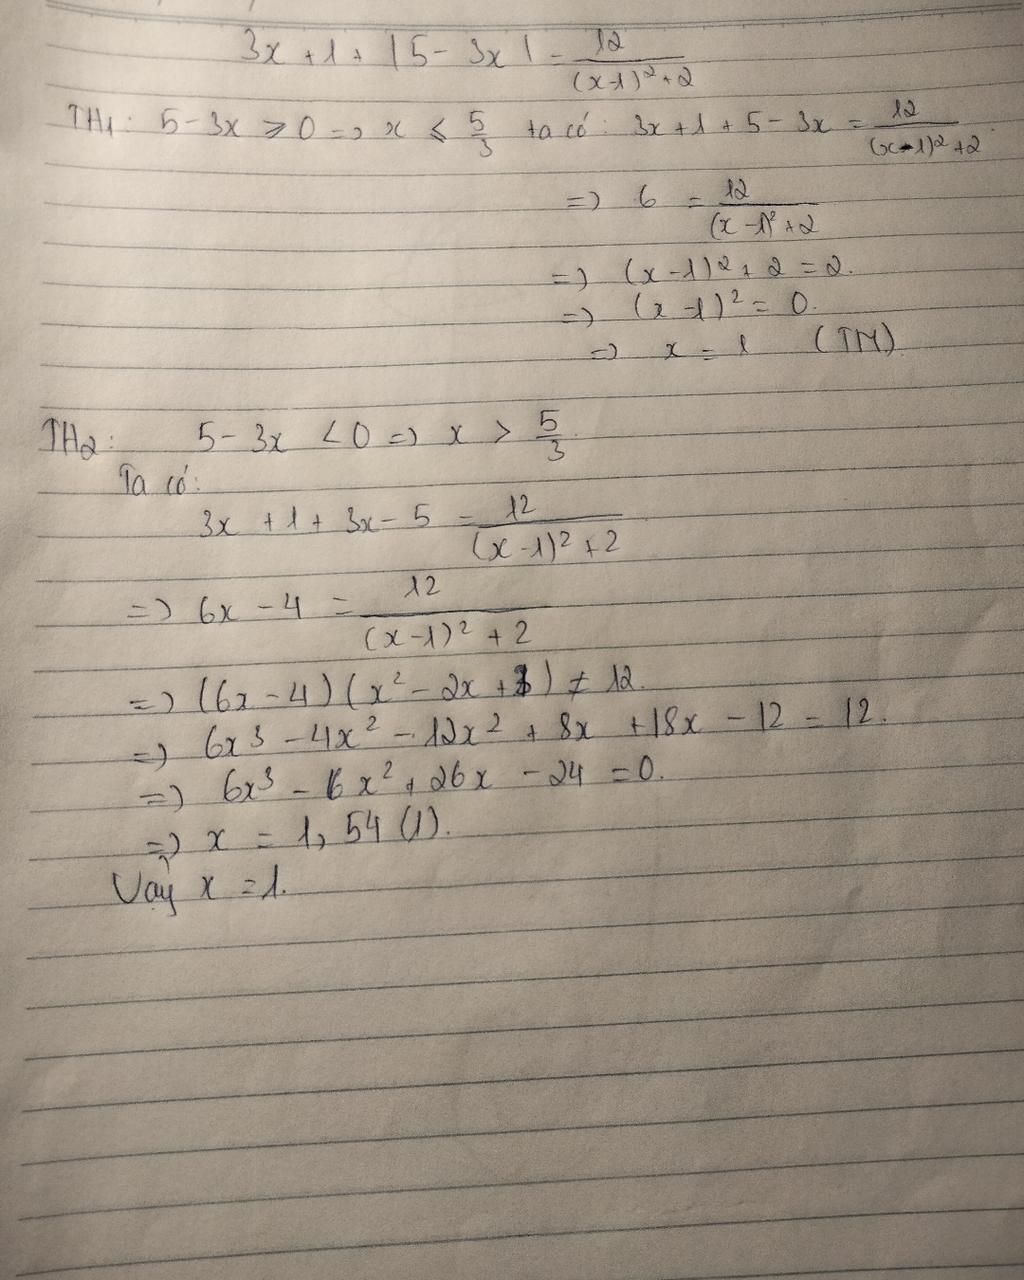 3x + 1 + |5 - 3x| = 12/((x-1)² + 2)
TH1: 5 - 3x ≥ 0 => x ≤ 5/3 ta có: 3x + 1 + 5 - 3x = 12/((x-1)² + 2)
=> 6 = 12/((x-1)² + 2)
=> (x-1)² + 2 = 2.
=> (x-1)² = 0.
=> x = 1 (TM)
TH2: 5 - 3x < 0 => x > 5/3
Ta có:
3x + 1 + 3x - 5 = 12/((x-1)² + 2)
=> 6x - 4 = 12/((x-1)² + 2)
=> (6x - 4)(x² - 2x + 3) ≠ 12.
=> 6x³ - 4x² - 12x² + 8x + 18x - 12 = 12.
=> 6x³ - 16x² + 26x - 24 = 0.
=> x = 1,54 (l).
Vậy x = 1.